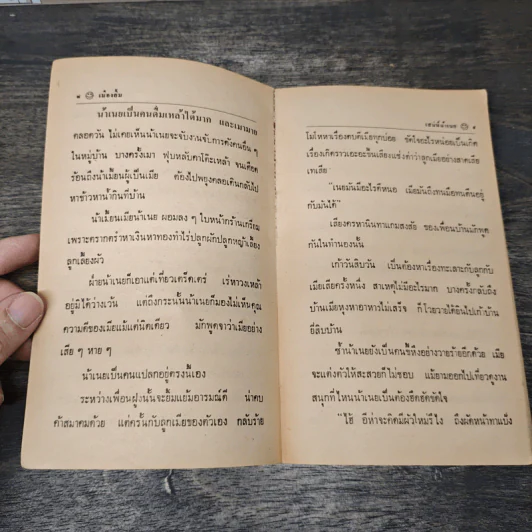 ๔ เมืองยิ้ม
น้าเนยเป็นคนดื่มเหล้าได้มาก และเมามาย
ตลอดวัน ไม่เคยเห็นน้าเนยจะจับงานขับการดังคนอื่น ๆ
ในหมู่บ้าน บางครั้งเมา ฟุบหลับคาโต๊ะเหล้า จนเดือด
ร้อนถึงน้าเมี้ยนผู้เป็นเมีย ต้องไปพยุงคลอเดินกลับไป
หาข้าวหาน้ำกินที่บ้าน
น้าเมี้ยนเมียน้าเนย ผอมลง ๆ ใบหน้ากร้านเกรียม
เพราะตรากตรำหาเงินหาทองทำไร่ปลูกผักปลูกหญ้าเลี้ยง
ลูกเลี้ยงผัว
ฝ่ายน้าเนยก็เอาแต่เที่ยวเตร็ดเตร่ เร่หาวงเหล้า
อยู่มิได้ว่างเว้น แต่ถึงกระนั้นน้าเนยก็มองไม่เห็นคุณ
ความดีของเมียแม้แต่นิดเดียว มักพูดจาว่าเมียอย่าง
เสีย ๆ หาย ๆ
น้าเนยเป็นคนแปลกอยู่ตรงนี้เอง
ระหว่างเพื่อนฝูงนั้นจะยิ้มแย้มอารมณ์ดี น่าคบ
ค้าสมาคมด้วย แต่ครั้นกับลูกเมียของตัวเอง กลับร้าย
เสน่ห์น้าเนย ๕
โมโหหาเรื่องตบตีเมียทุกบ่อย ขัดใจอะไรหน่อยเป็นเกิด
เรื่องเกิดราวเอะอะขึ้นเสียงแช่งด่าว่าลูกเมียอย่างสาดเสีย
เทเสีย
"เนยมันมีอะไรดีหนอ เมียมันถึงทนมือทนตีนอยู่
กับมันได้"
เสียงครหานินทาแกมสงสัย ของเพื่อนบ้านมักพูด
กันในทำนองนั้น
เก้าวันสิบวัน เป็นต้องหาเรื่องทะเลาะกับลูกกับ
เมียเสียครั้งหนึ่ง สาเหตุไม่มีอะไรมาก บางครั้งกลับถึง
บ้านเมียหุงหาอาหารไม่เสร็จ ก็โวยวายได้ยินไปเก้าบ้าน
ยี่สิบบ้าน
ซ้ำน้าเนยยังเป็นคนขี้หึงอย่างวายร้ายอีกด้วย เมีย
จะแต่งตัวให้สะสวยก็ไม่ชอบ แม้ยามออกไปเที่ยวดูงาน
สนุกที่ไหนน้าเนยเป็นต้องฮึดฮัดขัดใจ
"ไฮ้ อีห่าจะคิดมีผัวใหม่รึไง ถึงผัดหน้าทาแป้ง